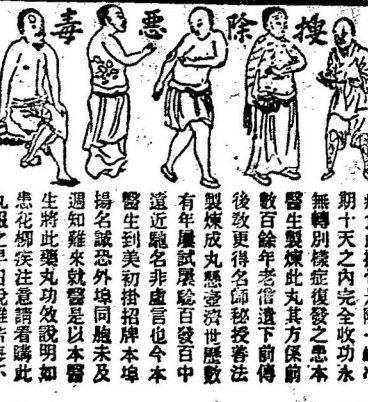 搜除惡毒
期十天之內完全收功永
無轉別樣症復發之患本
醫生製煉此丸其方係前
數百餘年老僧遺下前傳
後敎更得名師秘授善法
製煉成丸懸壺濟世歷數
有年屢試屢驗百發百中
遠近馳名非虛言也今本
醫生到美初掛招牌本埠
揚名誠恐外埠同胞未及
週知難來就醫是以本醫
生將此藥丸功效說明如
患花柳疾注意請看購此
丸服之